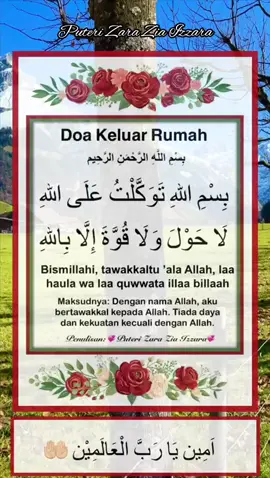 Puteri Zara Zia Izzara
Doa Keluar Rumah
بِسْمِ اللَّهِ الرَّحْمَنِ الرَّحِيمِ
بِسْمِ اللهِ تَوَكَّلْتُ عَلَى اللهِ
لَا حَوْلَ وَلَا قُوَّةَ إِلَّا بِاللهِ
Bismillahi, tawakkaltu 'ala Allah, laa
haula wa laa quwwata illaa billaah
Maksudnya: Dengan nama Allah, aku
bertawakkal kepada Allah. Tiada daya
dan kekuatan kecuali dengan Allah.
Penulisan:💞 Puteri Zara Zia Izzara💞
اَمِين يَا رَبَّ الْعَالَمِيْن 🤲🏼